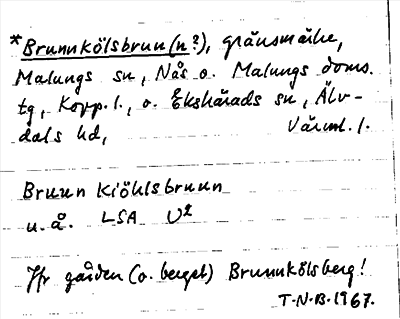 *Brunnkölsbrun(n?), gränsmärke,
Malungs sn, Nås o. Malungs doms.
tg, Kopp. l., o. Ekshärads sn, Älv-
dals hd, Värml. l.
Bruun Kiöhlsbruun
u.å. LSA U2
Jfr gården (o. berget) Brunnkölsberg!
T.N.B. 1967.